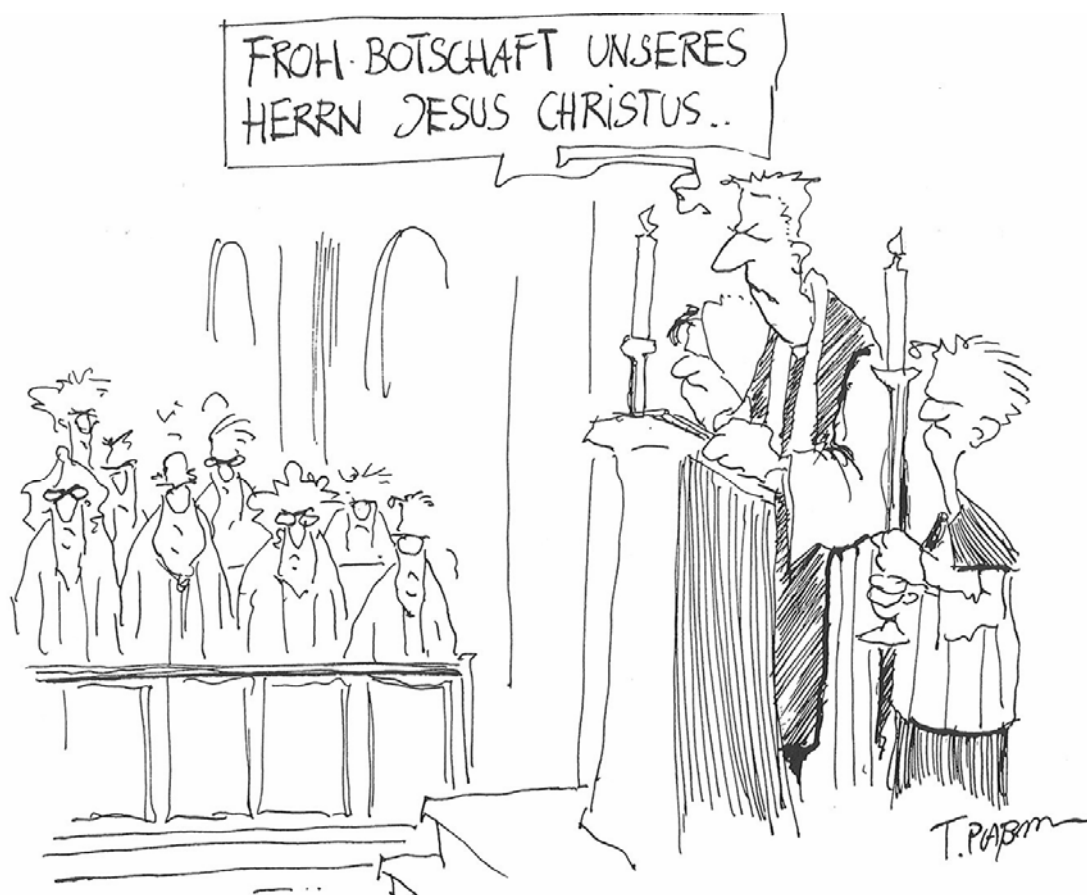 FROH·BOTSCHAFT UNSERES
HERRN JESUS CHRISTUS..
T. PLAßmann